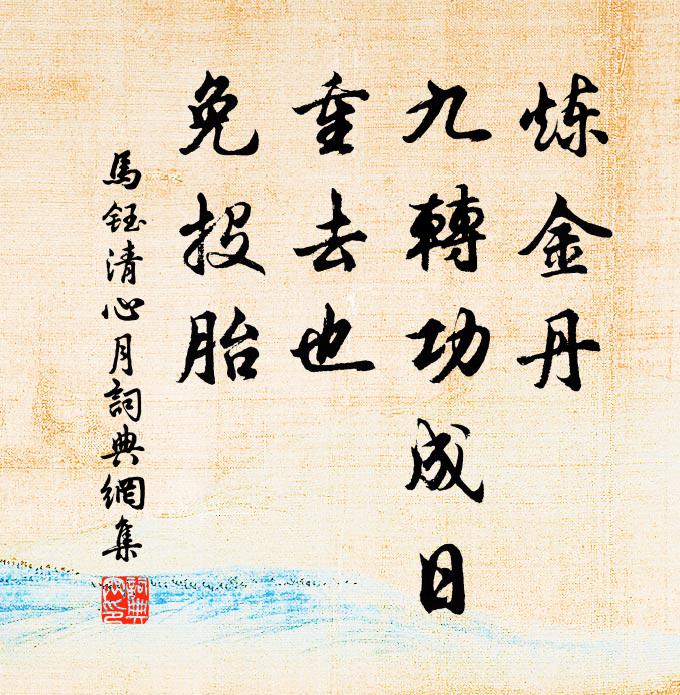 炼金丹
九轉功成日
重去也
免投胎
馬鈺清心月詞典網集